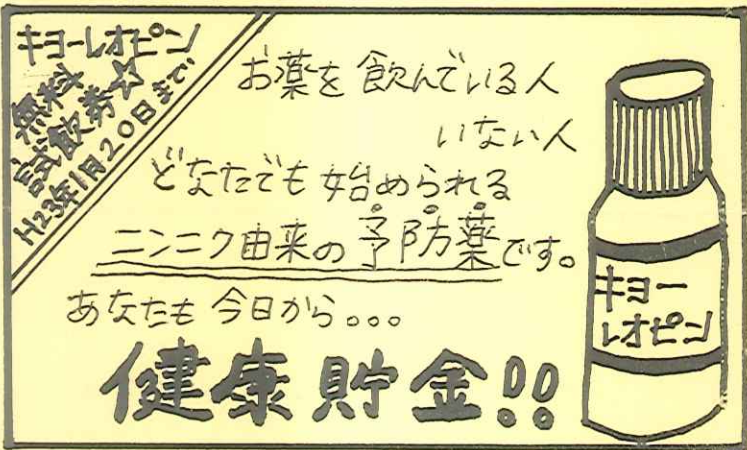 キヨーレオピン
無料
試飲券☆
H23年1月20日まで
お薬を飲んでいる人
いない人
どなたでも始められる
ニンニク由来の予防薬です。
あなたも今日から。。。
健康貯金!!
キヨー
レオピン